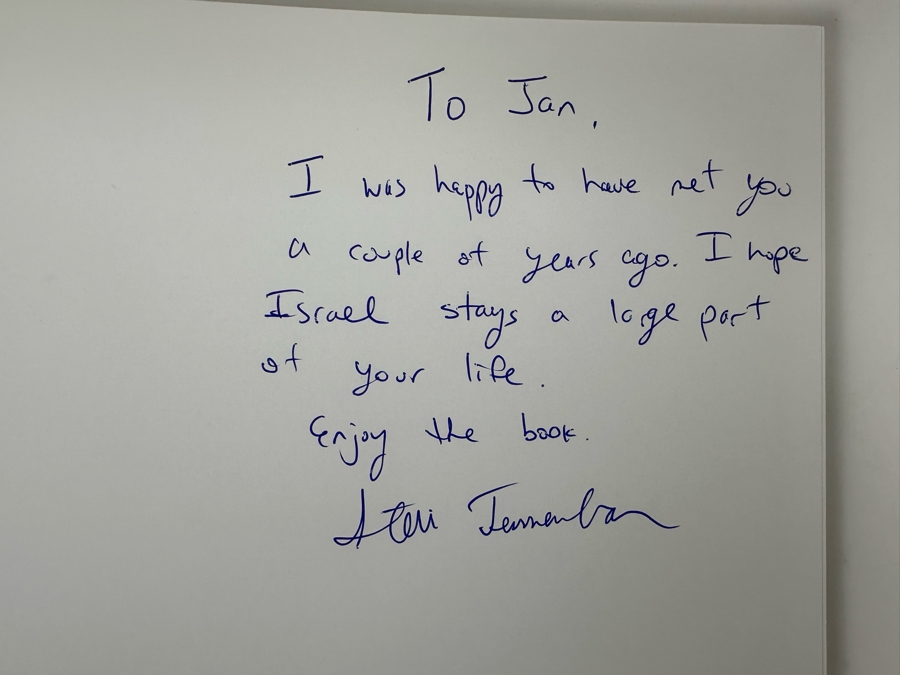 To Jan,
I was happy to have met you
a couple of years ago. I hope
Israel stays a large part
of your life.
Enjoy the book.